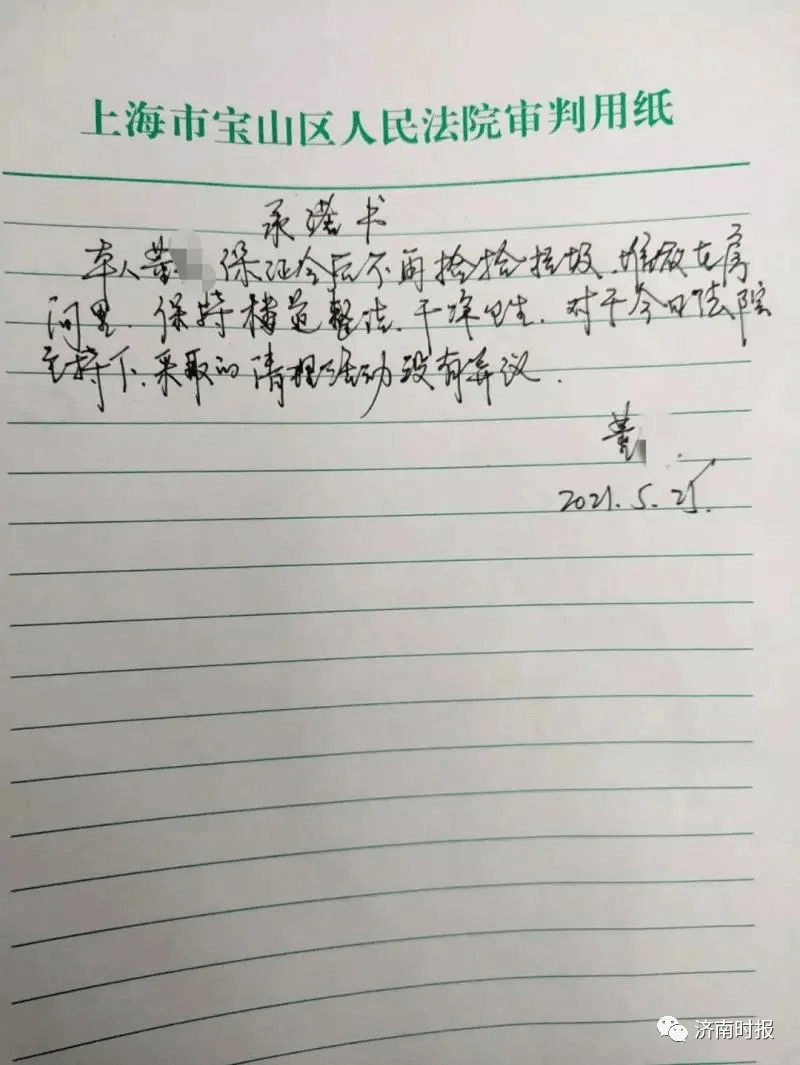 上海市宝山区人民法院审判用纸
承诺书
本人董 保证今后不再捡拾垃圾、堆放在房
间里、保持楼道整洁、干净卫生、对于今日法院
主持下、采取的清理活动没有异议.
董
2021.5.25.
济南时报